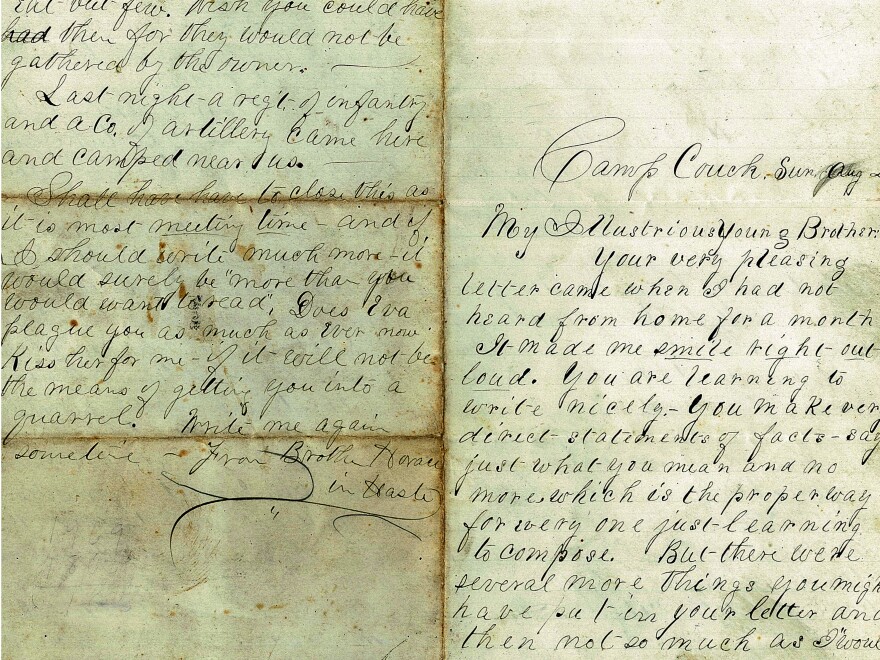 eat but few. Wish you could have
had then for they would not be
gathered by the owner.
Last night a regt. of infantry
and a Co. of artillery came here
and camped near us.
Shall have have to close this as
it is most meeting time - and if
I should write much more - it
would surely be "more than you
would want to read". Does Eva
plague you as much as ever now
Kiss her for me - if it will not be
the means of getting you into a
quarrel. Write me again
sometime - From Brother Horace
in Haste
Camp Couch, Sun, Aug
My Illustrious Young Brother:
Your very pleasing
letter came when I had not
heard from home for a month
It made me smile right out
loud. You are learning to
write nicely. - You make very
direct statements of facts - say
just what you mean and no
more, which is the proper way
for every one just learning
to compose. But there were
several more things you migh
have put in your letter and
then not so much as I "woul